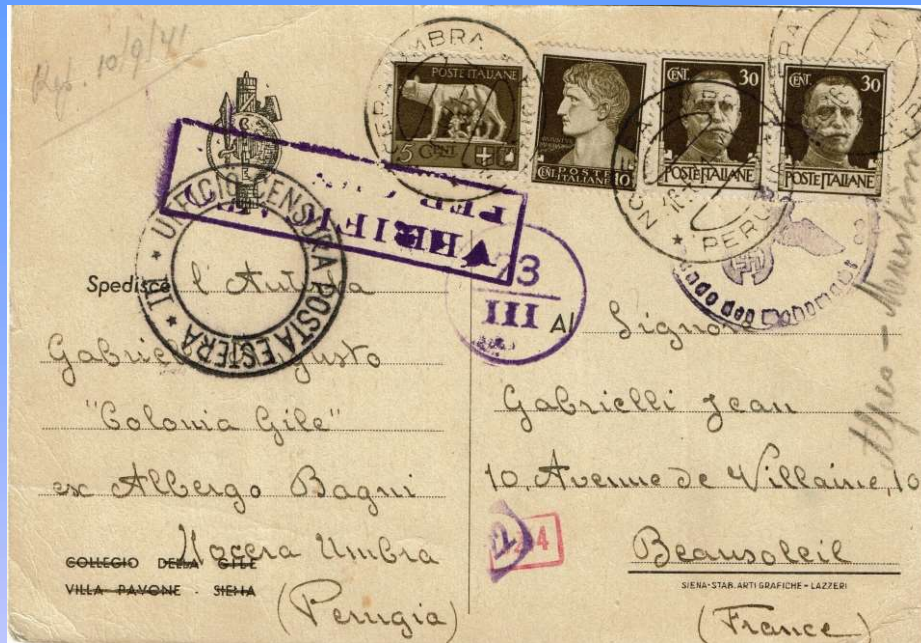 Rép. 10/9/41
POSTE ITALIANE
5 CENT
CENT. POSTE ITALIANE 10
CENT. 30
POSTE ITALIANE
CENT. 30
POSTE ITALIANE
NOCERA UMBRA
PERUGIA
VERIFICATO
PER
UFFICIO CENSURA POSTA ESTERA * IT *
23
III
Spedisce l'
Gabrie usto
"Colonia Gile"
ex Albergo Bagni
Nocera Umbra
(Perugia)
COLLEGIO DELLA GILE
VILLA PAVONE - SIENA
Al Signor
Gabrielli Jean
10, Avenue de Villaine, 10
Beausoleil
(France)
Alpes-Maritimes
SIENA-STAB. ARTI GRAFICHE - LAZZERI